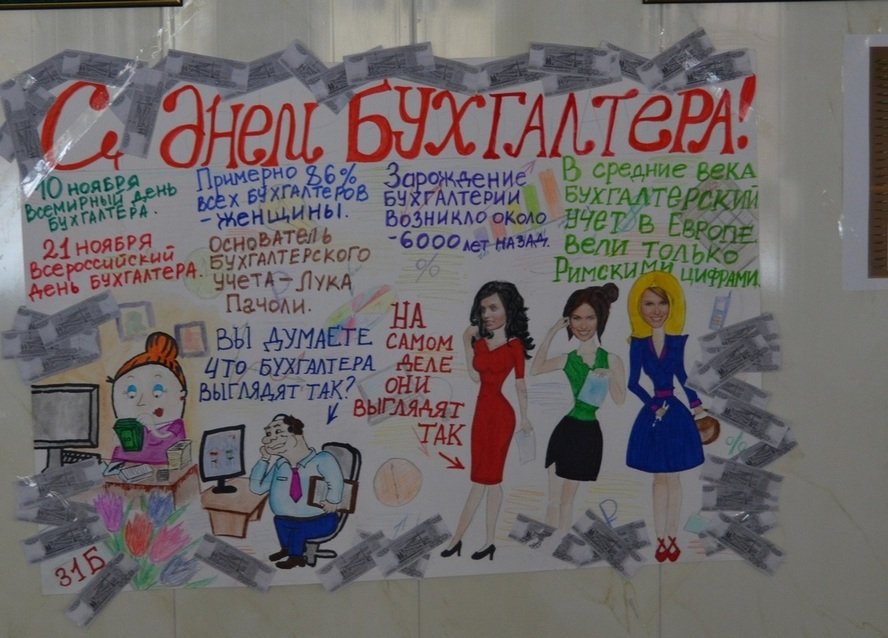 С Днем БУХГАЛТЕРА!
10 НОЯБРЯ
Всемирный День
БУХГАЛТЕРА.
21 НОЯБРЯ
Всероссийский
День БУХГАЛТЕРА.
Примерно 86%
всех БУХГАЛТЕРОВ
- ЖЕНЩИНЫ.
Основатель
БУХГАЛТЕРСКОГО
учета - Лука
Пачоли.
Зарождение
БУХГАЛТЕРИИ
Возникло около
-6000 лет назад.
В средние века
БУХГАЛТЕРСКИЙ
учет в Европе
вели только
Римскими цифрами.
ВЫ ДУМАЕТЕ
что БУХГАЛТЕРА
ВЫГЛЯДЯТ ТАК?
НА
САМОМ
ДЕЛЕ
ОНИ
ВЫГЛЯДЯТ
ТАК
31Б